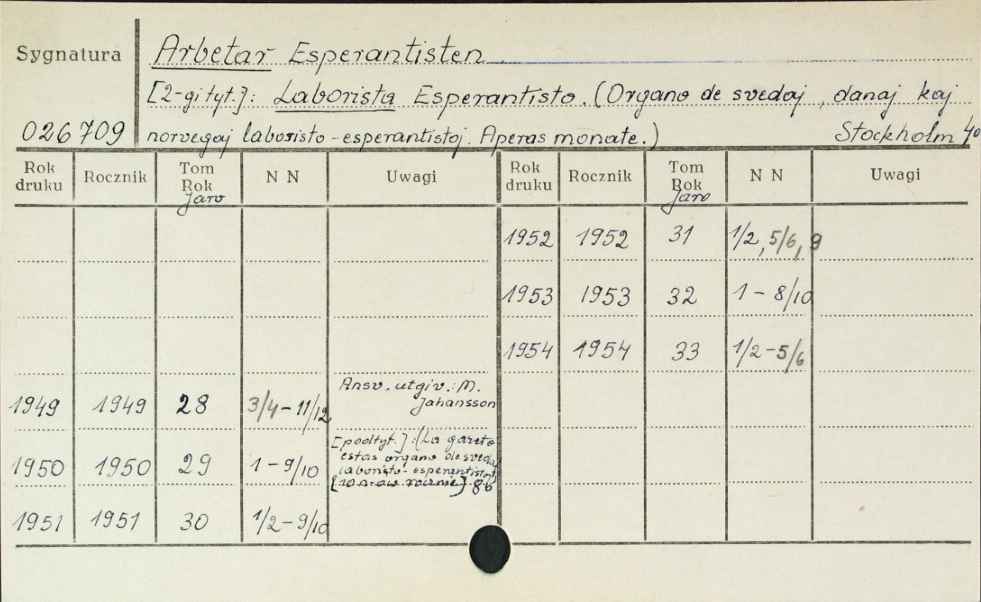 Sygnatura
Arbetar Esperantisten
[2-gi tyt.]: Laborista Esperantisto. (Organo de svedaj, danaj kaj
026709 norvegaj laboristo-esperantistoj. Aperas monate.) Stockholm 40
Rok druku Rocznik Tom Rok Jaro N N Uwagi Rok druku Rocznik Tom Rok Jaro N N Uwagi
1952 1952 31 1/2, 5/6, 9
1953 1953 32 1 - 8/10
1954 1954 33 1/2 - 5/6
1949 1949 28 3/4 - 11/12 Ansv. utgiv.: M.
Jahansson
1950 1950 29 1 - 9/10 [podtyt.]: (La gazeto
estas organo de svedaj
laboristo-esperantistoj
[10 n-rów rocznie] 8b
1951 1951 30 1/2 - 9/10